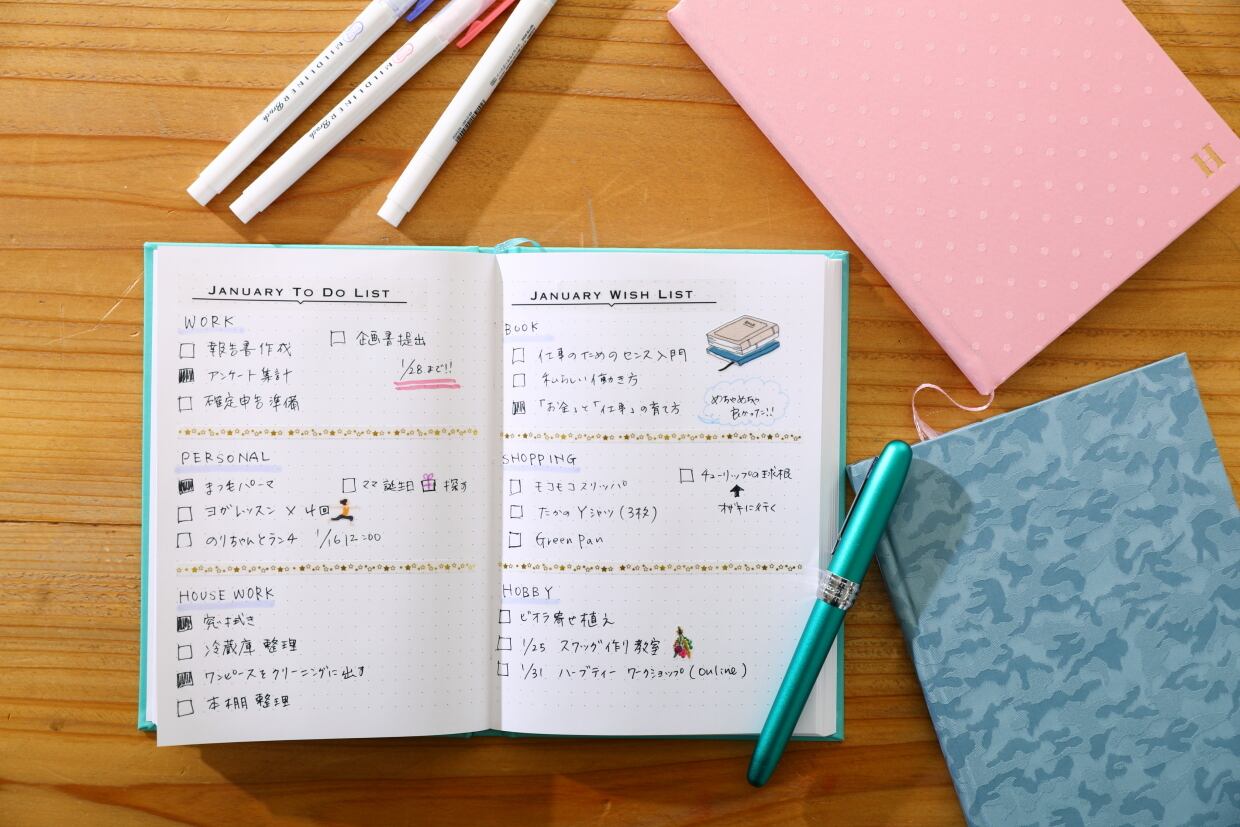 MIDLINER Brush
MIDLINER Brush
H
JANUARY TO DO LIST
WORK
□ 報告書作成
アンケート集計
□ 確定申告準備
□ 企画書提出
1/28まで!!
PERSONAL
まつ毛パーマ
□ ヨガレッスン × 4回
□ のりちゃんとランチ 1/16 12:00
□ ママ誕生日 探す
HOUSE WORK
窓拭き
□ 冷蔵庫整理
ワンピースをクリーニングに出す
□ 本棚整理
JANUARY WISH LIST
BOOK
□ 仕事のためのセンス入門
□ 私らしい働き方
「お金」と「仕事」の育て方
めちゃめちゃ
良かった!!
SHOPPING
□ モコモコスリッパ
□ たかのYシャツ(3枚)
□ Green Pan
□ チューリップの球根
オザキに行く
HOBBY
□ ビオラ寄せ植え
□ 1/25 スワッグ作り教室
□ 1/31 ハーブティー ワークショップ(online)